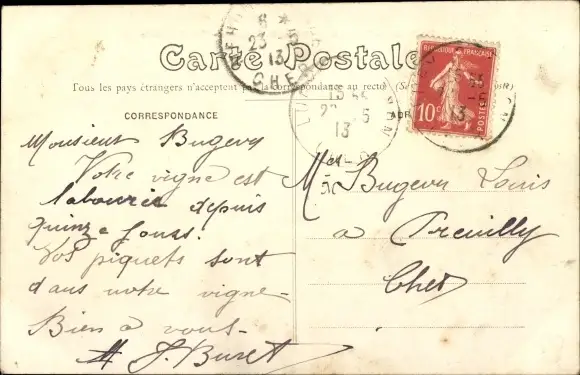 Carte Postale
Tous les pays étrangers n'acceptent pas la correspondance au recto (Se
CORRESPONDANCE
ADR
RÉPUBLIQUE FRANÇAISE
10c
POSTES
6 *
23 5
13
CHER
13
Monsieur Bugevy
Votre vigne est
labourée depuis
quinze jours.
Vos piquets sont
dans votre vigne-
Bien à vous-
J. Buret
Mr Bugevy Louis
a Preuilly
Cher